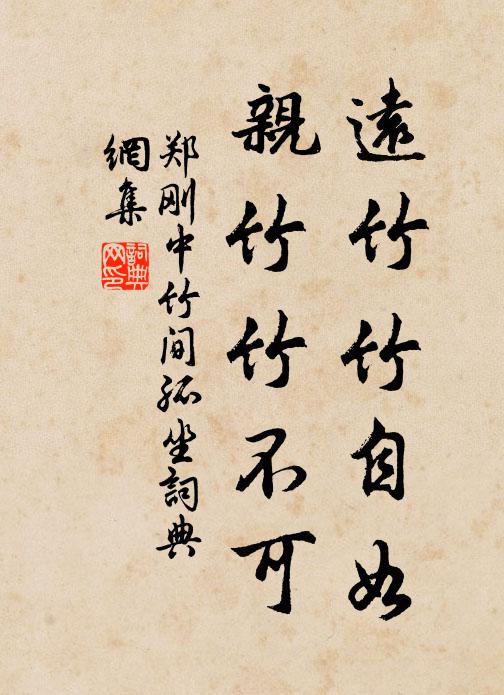 遠竹竹自如
親竹竹不可
郑刚中竹间孤坐詞典
網集
詞典
网印